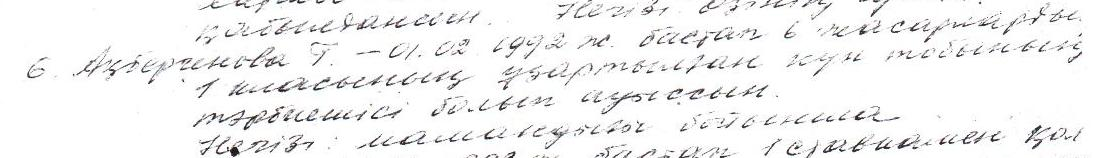 қабылдансын. Негізі өзінің
6. Ақбергенова Т. – 01.02.1992 ж. бастап 6 жасарлардың
1 класының ұзартылған күн тобының
тәрбиешісі болып ауыссын.
Негізі: мамандығы бойынша
бастап 1 ставкамен қал